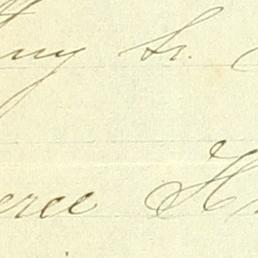 ny Sr.
erce H